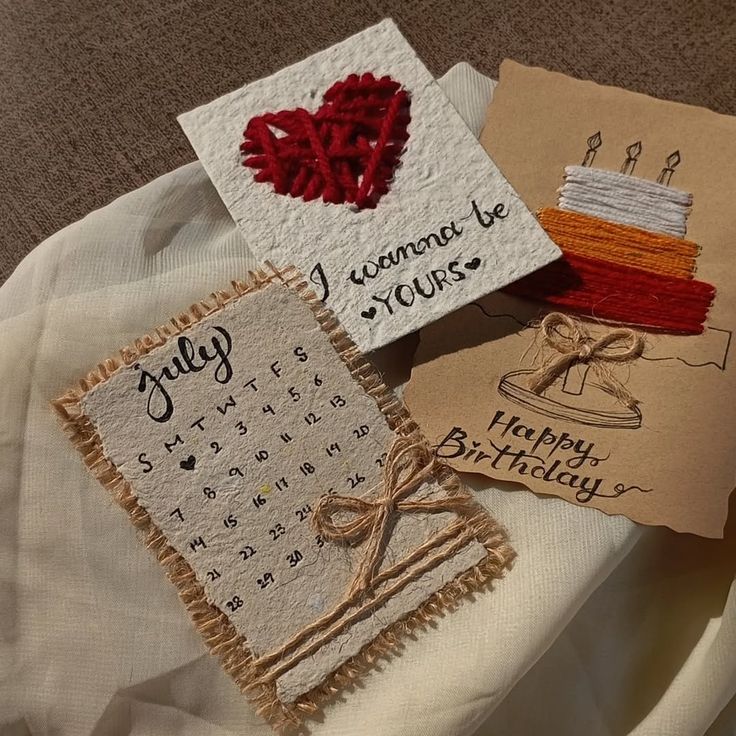 I wanna be
♥YOURS♥
Happy
Birthday
July
S M T W T F S
♥ 2 3 4 5 6
7 8 9 10 11 12 13
14 15 16 17 18 19 20
21 22 23 24 25 26
28 29 30